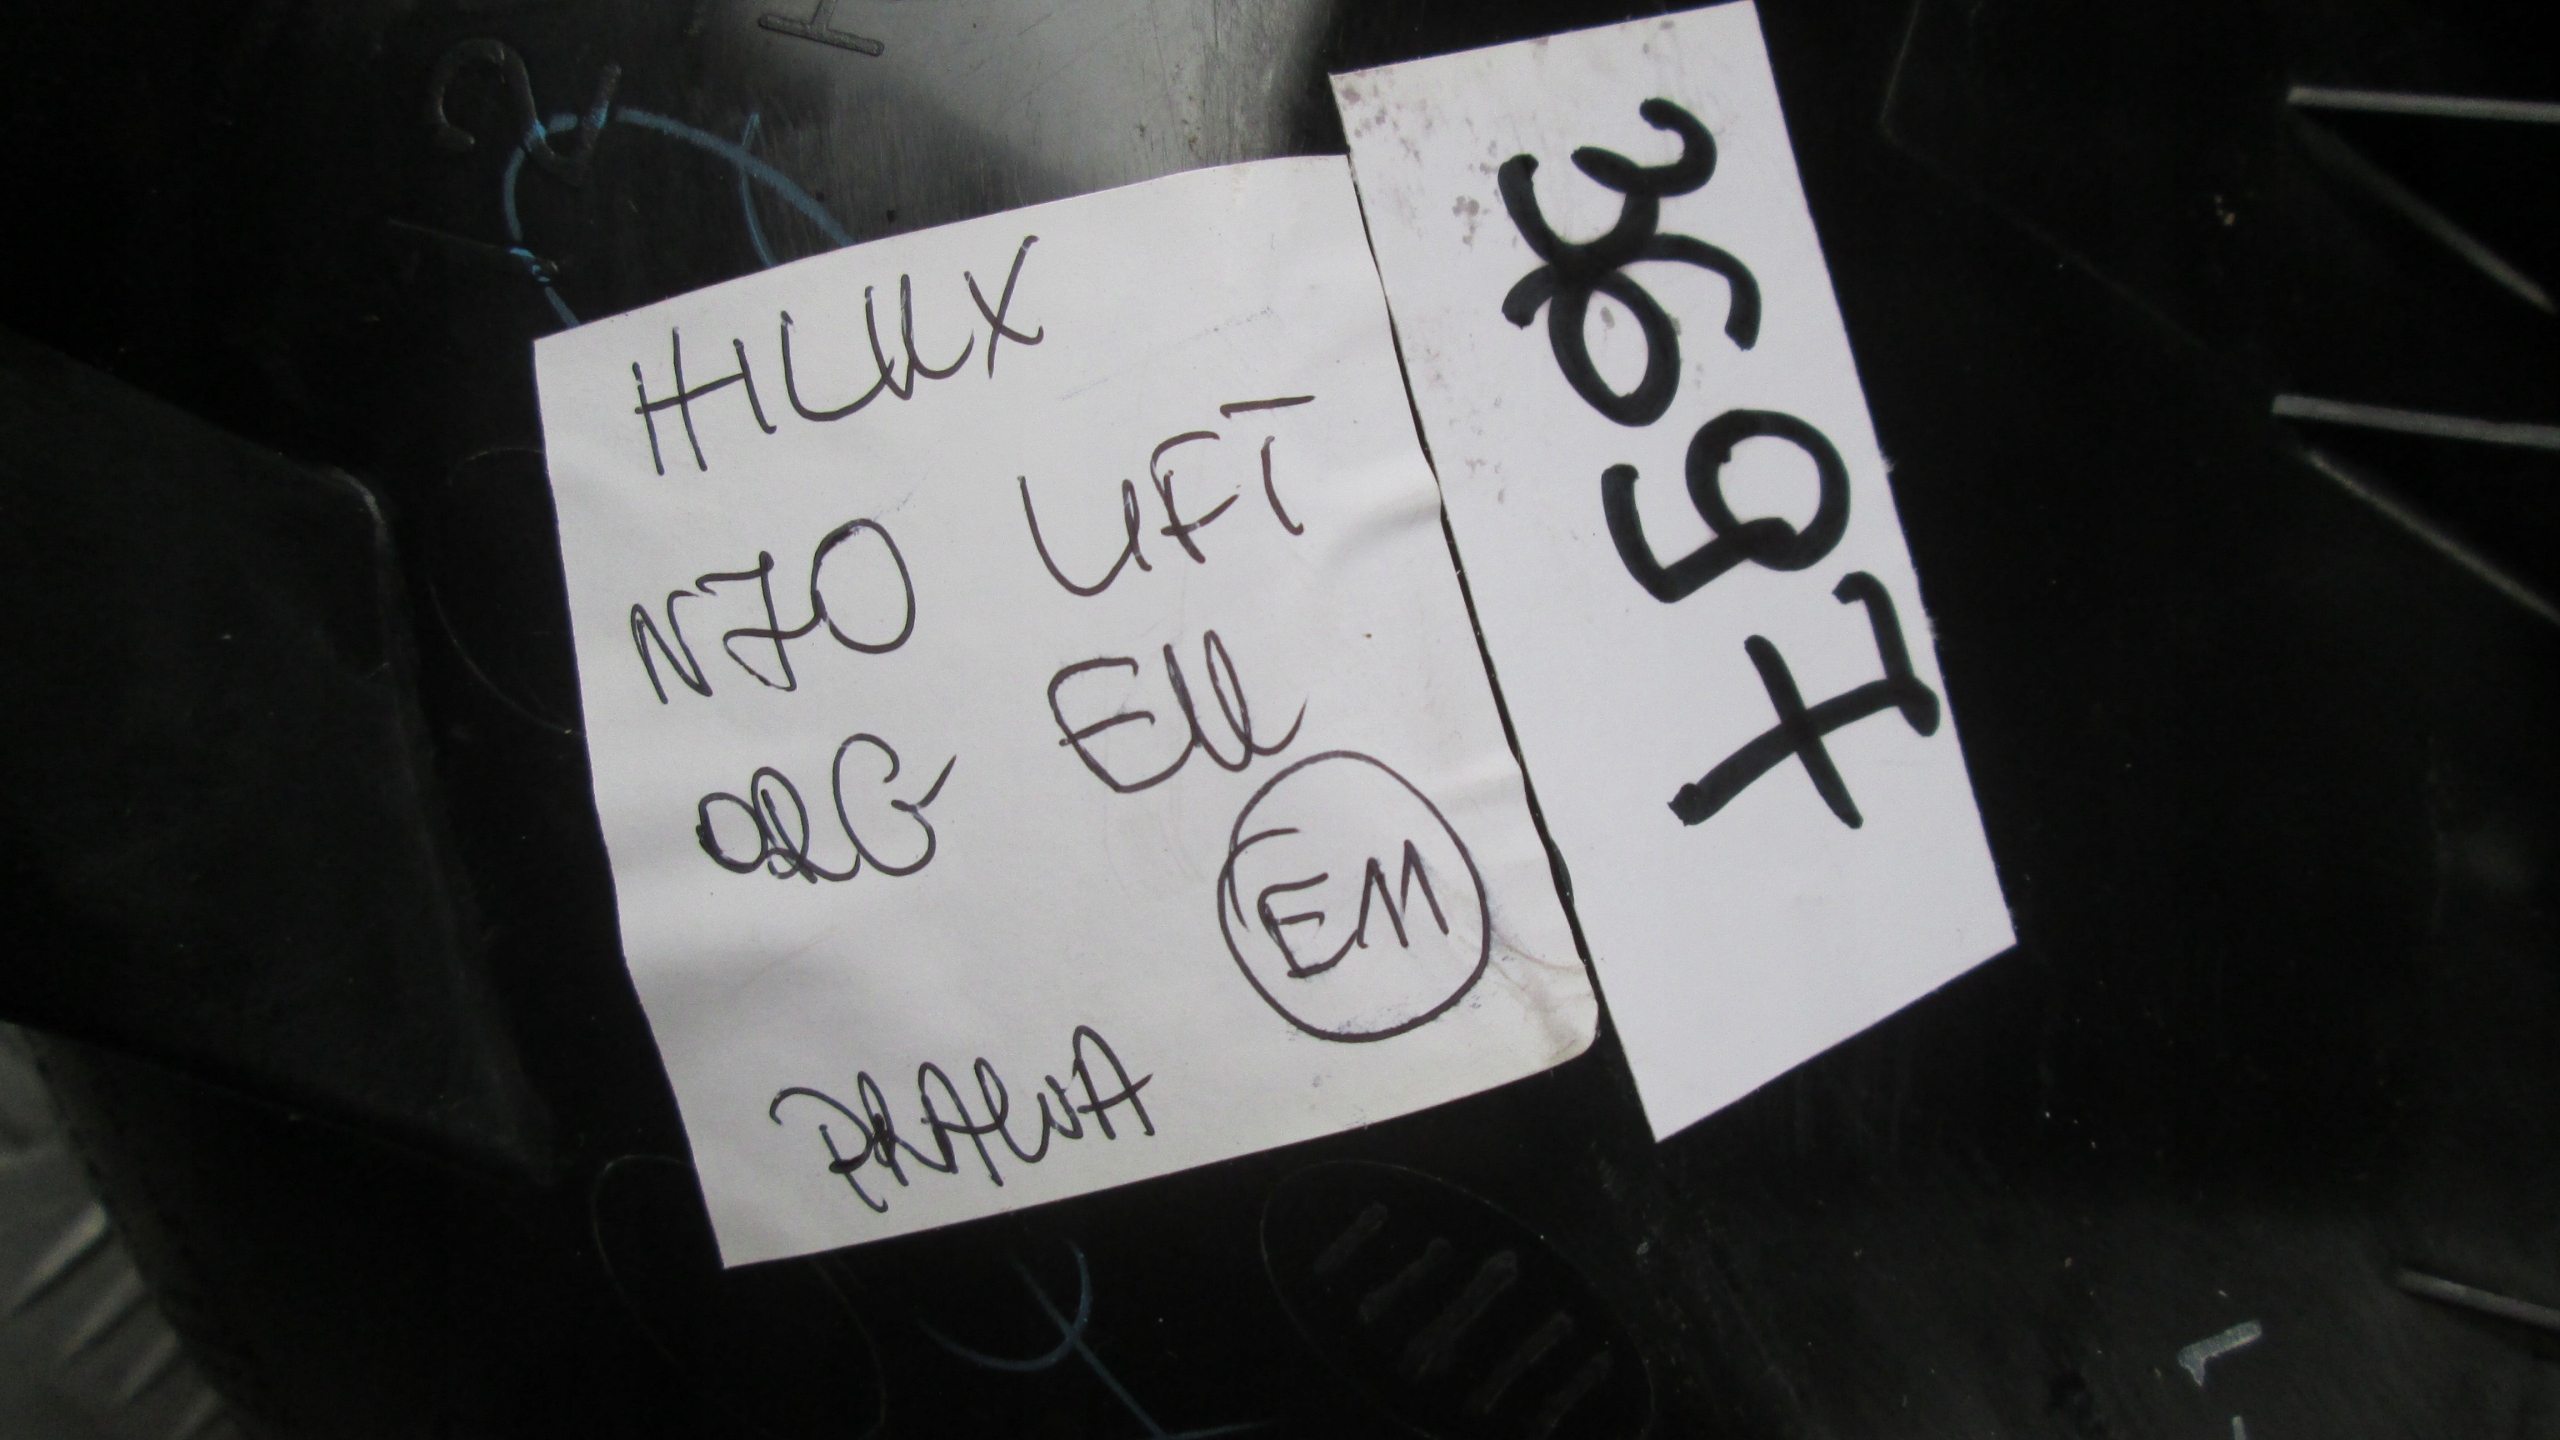 HILUX
N70 LIFT
ORG EU
EM
PRAWA
3697